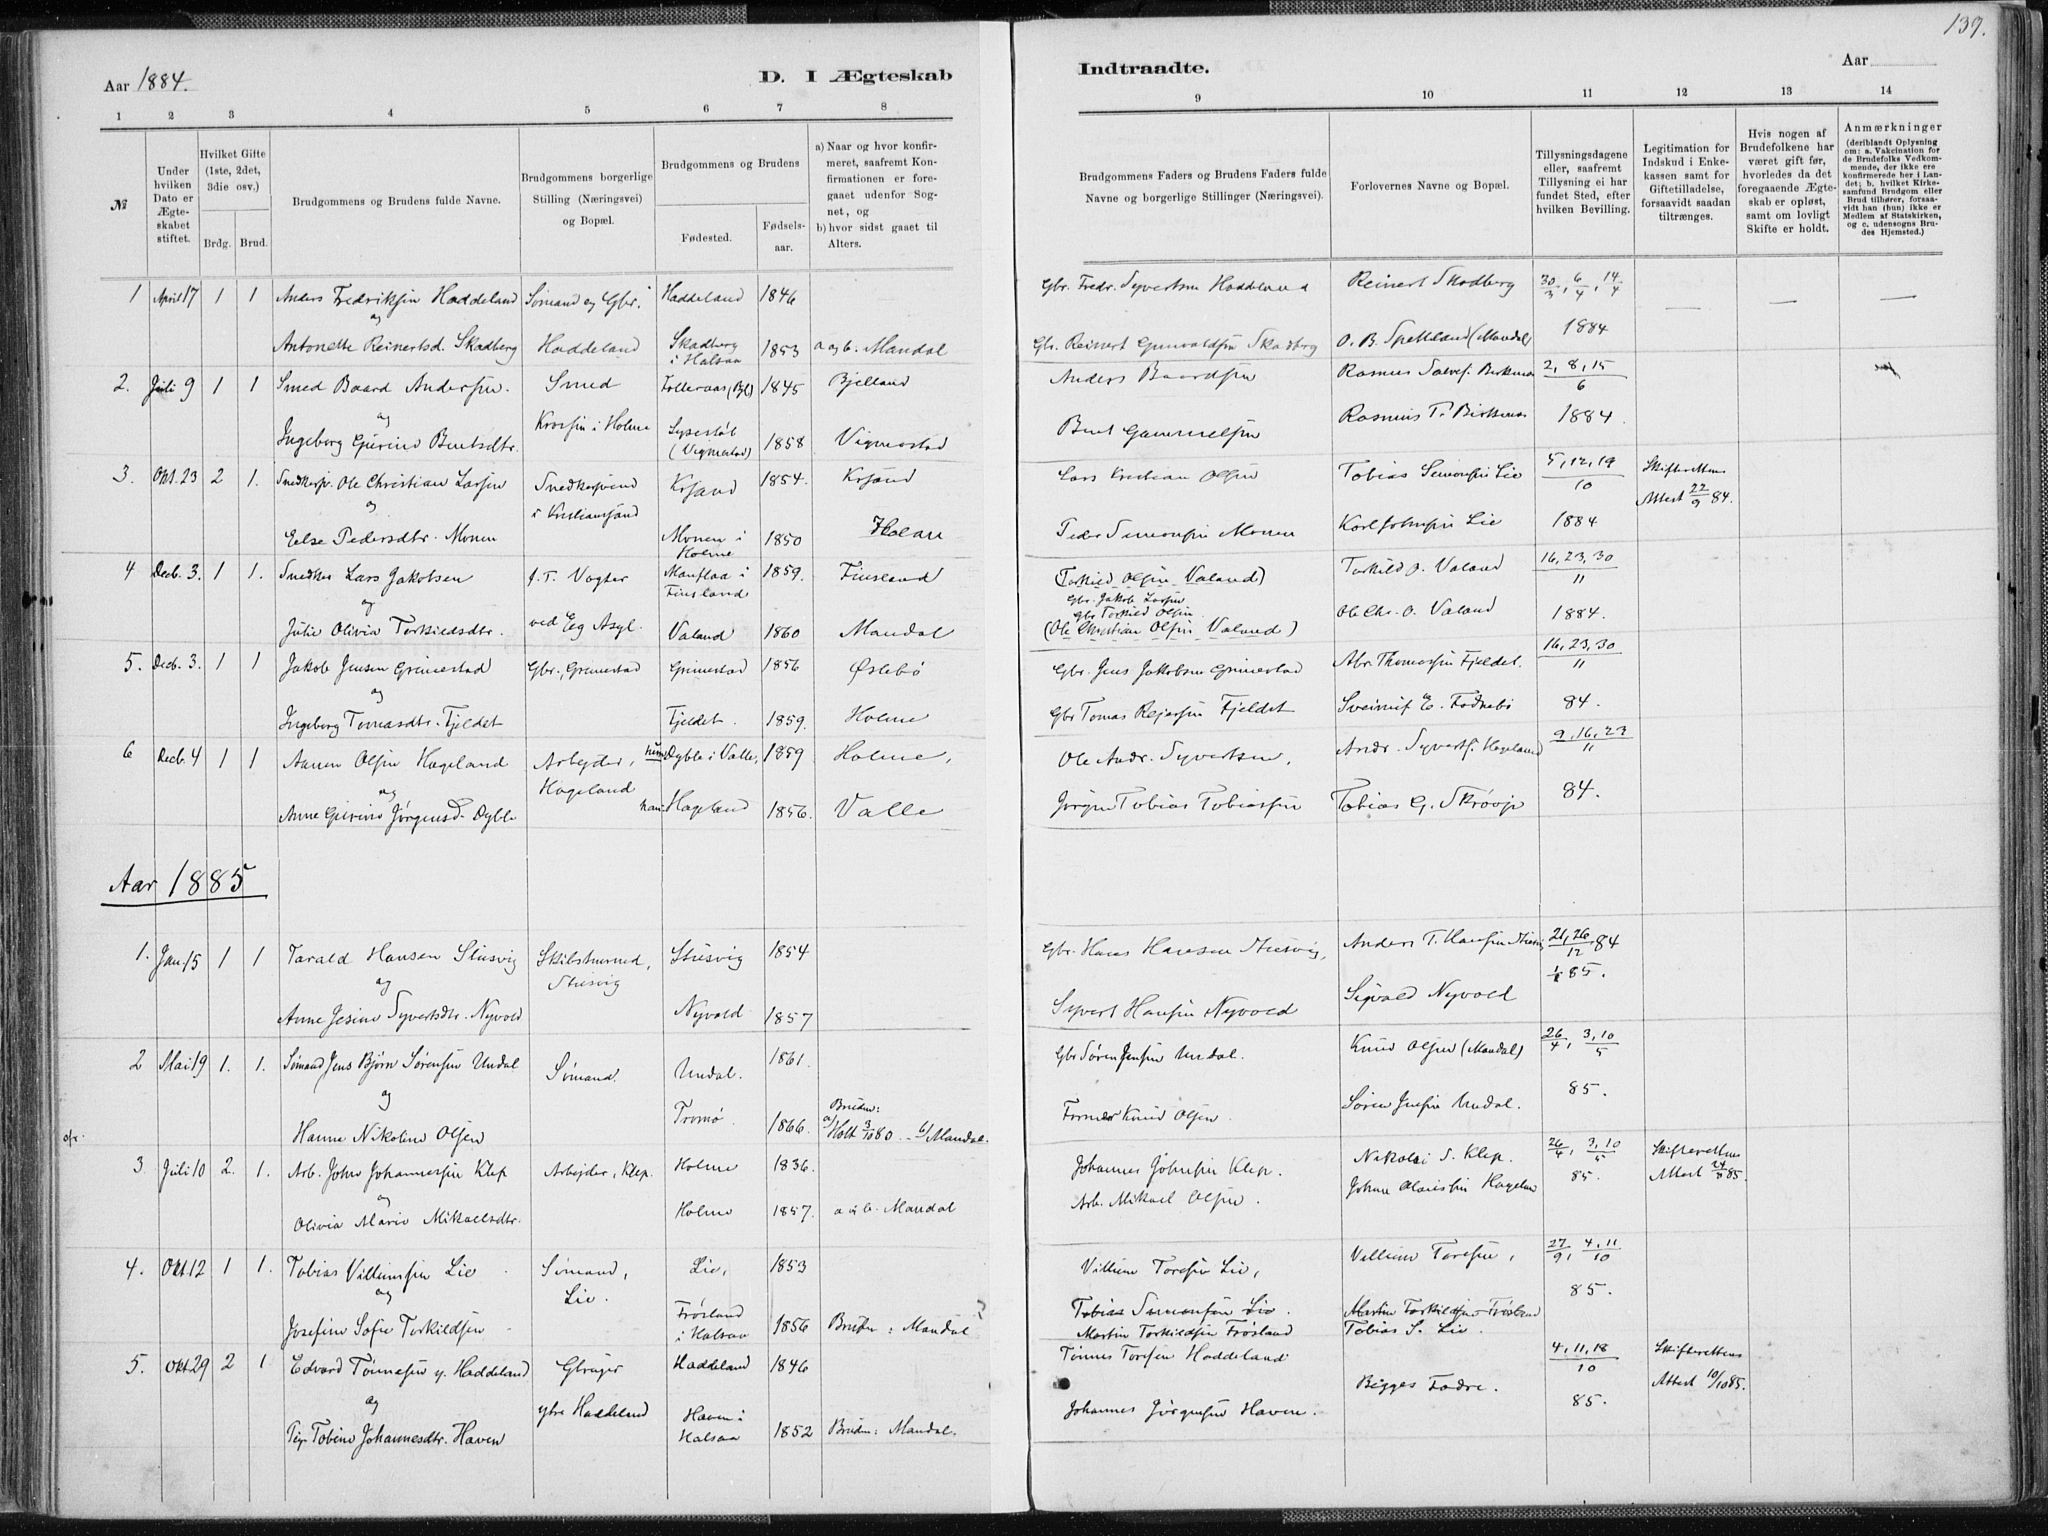 137.
Aar 1884.
D. I Ægteskab
Indtraadte.
Aar
1 2 3 4 5 6 7 8 9 10 11 12 13 14
№
Under hvilken Dato er Ægteskabet stiftet.
Hvilket Gifte (1ste, 2det, 3die osv.)
Brdg. Brud.
Brudgommens og Brudens fulde Navne.
Brudgommens borgerlige Stilling (Næringsvei) og Bopæl.
Brudgommens og Brudens
Fødested.
Fødselsaar.
a) Naar og hvor konfirmeret, saafremt Konfirmationen er foregaaet udenfor Sognet, og
b) hvor sidst gaaet til Alters.
Brudgommens Faders og Brudens Faders fulde Navne og borgerlige Stillinger (Næringsvei).
Forlovernes Navne og Bopæl.
Tillysningsdagene eller, saafremt Tillysning ei har fundet Sted, efter hvilken Bevilling.
Legitimation for Indskud i Enkekassen samt for Giftetilladelse, forsaavidt saadan tiltrænges.
Hvis nogen af Brudefolkene har været gift før, hvorledes da det foregaaende Ægteskab er opløst, samt om lovligt Skifte er holdt.
Anmærkninger (deriblandt Oplysning om: a. Vakcination for de Brudefolks Vedkommende, der ikke ere konfirmerede her i Landet; b. hvilket Kirkesamfund Brudgom eller Brud tilhører, forsaavidt han (hun) ikke er Medlem af Statskirken, og c. udensogns Brudes Hjemsted.)
1 April 17 1 1 Anders Fredriksen Haddeland Sømand og Gbr. Haddeland 1846 Gbr. Fredr. Syvertsen Haddeland Reinert Skadberg 30/3, 6/4, 14/4 — — —
og
Antonette Reinertsd. Skadberg Haddeland Skadberg i Halsaa 1853 a og b. Mandal Gbr. Reinert Skadberg O. B. Spetteland (Mandal) 1884
2. Juli 9 1 1 Smed Baard Andersen. Smed (Bjl) 1845 Bjelland Anders Baardsen Rasmus Salves. 2, 8, 15/6
og
Ingeborg Gurine Bentsdtr. i Holme (Vigmostad) 1858 Vigmostad Bent Gammelsen Rasmus T. 1884.
3. Okt. 23 2 1. Snedkersv. Ole Christian Larsen Snedkersvend i Kristiansand Krsand 1854. Krsand Lars Kristian Olsen Tobias Simonsen Lie 5, 12, 19/10 Skifterettens
og
Else Pedersdtr. Monen Monen i Holme 1850 Holme Peder Simonsen Monen Karl Johnsen Lie 1884 Attest 22/9 84.
4 Decb. 3. 1 1. Snedker Lars Jakobsen f. T. Vogter Manflaa i Finsland 1859. Finsland (Torkild Olsen Valand) Torkild O. Valand 16, 23, 30/11
og
Gbr. Jakob Larsen
Gbr Torkild Olsen
Julie Olivia Torkildsdtr. ved Eg Asyl. Valand 1860 Mandal (Ole Christian Olsen Valand) Ole Chr. O. Valand 1884.
5. Decb. 3. 1 1 Jakob Jensen Grimestad Gbr., Grimestad Grimestad 1856 Øslebø Gbr. Jens Jakobsen Grimestad Abr. Thomassen Fjeldet. 16, 23, 30/11
og
Ingeborg Tomasdtr. Fjeldet Fjeldet. 1859. Holme Gbr Tomas Rejersen Fjeldet E. Fodnebø 84.
6 Decb. 4 1 1 Aanen Olsen Hageland Arbejder, hun Dyble i Valle, 1859. Holme, Ole Andr. Syvertsen, Andr. Syverts. Hageland 9, 16, 23/11
og
Anne Gurine Jørgensd. Dyble Hageland han Hageland 1856. Valle Jørgen Tobias Tobiassen Tobias G. Skrøvje 84.
Aar 1885
1. Jan. 15 1 1 Tarald Hansen Stusvig Skibstømmd, Stusvig Stusvig 1854 Gbr. Hans Hansen Stusvig, Anders T. Hansen 21, 26/12 84
og
Anne Jesine Syvertsdtr. Nyvold Nyvold 1857 Syvert Hansen Nyvold Sigvald Nyvold 1/1 85.
2 Mai 19 1. 1. Sømand Jens Bjørn Sørensen Undal Sømand. Undal. 1861. Gbr Søren Jensen Undal. Knud Olsen (Mandal) 26/4, 3, 10/5
og
Hanne Nikoline Olsen Tromø. 1866. Bruden: a/ Holt 3/10 80 – b/ Mandal. Knud Olsen. Søren Jensen Undal. 85.
3 Juli 10 2. 1. Arb. John Johannessen Klep Arbejder, Klep. Holme 1836. Johannes Johnsen Klep. Nikolai S. Klep. 26/4, 3, 10/5 Skifterettens
og
Olivia Marie Mikaelsdtr. Holme 1857. a og b. Mandal Arb. Mikael Olsen. 85. Attest 24/3 85.
4. Okt. 12 1 1. Tobias Villumsen Lie Sømand, Lie. Lie, 1853 Villum Toresen Lie, Villum Toresen, 27/9, 4, 11/10
og
Josefine Sofie Torkildsen Frøsland i Halsaa 1856 Bruden: Mandal Tobias Simonsen Lie. Martin Torkildsen Frøsland 85.
Martin Torkildsen Frøsland Tobias S. Lie.
5. Okt. 29 2 1 Edvard Tønnesen y. Haddeland Gbruger Haddeland 1846 Tønnes Toresen Haddeland 4, 11, 18/10 Skifterettens
og
ytre Haddeland Begges Fædre. Attest 10/10 85.
Pige Tobine Johannesdtr. Haven Haven i Halsaa 1852 Bruden: Mandal. Johannes Jørgensen Haven. 85.